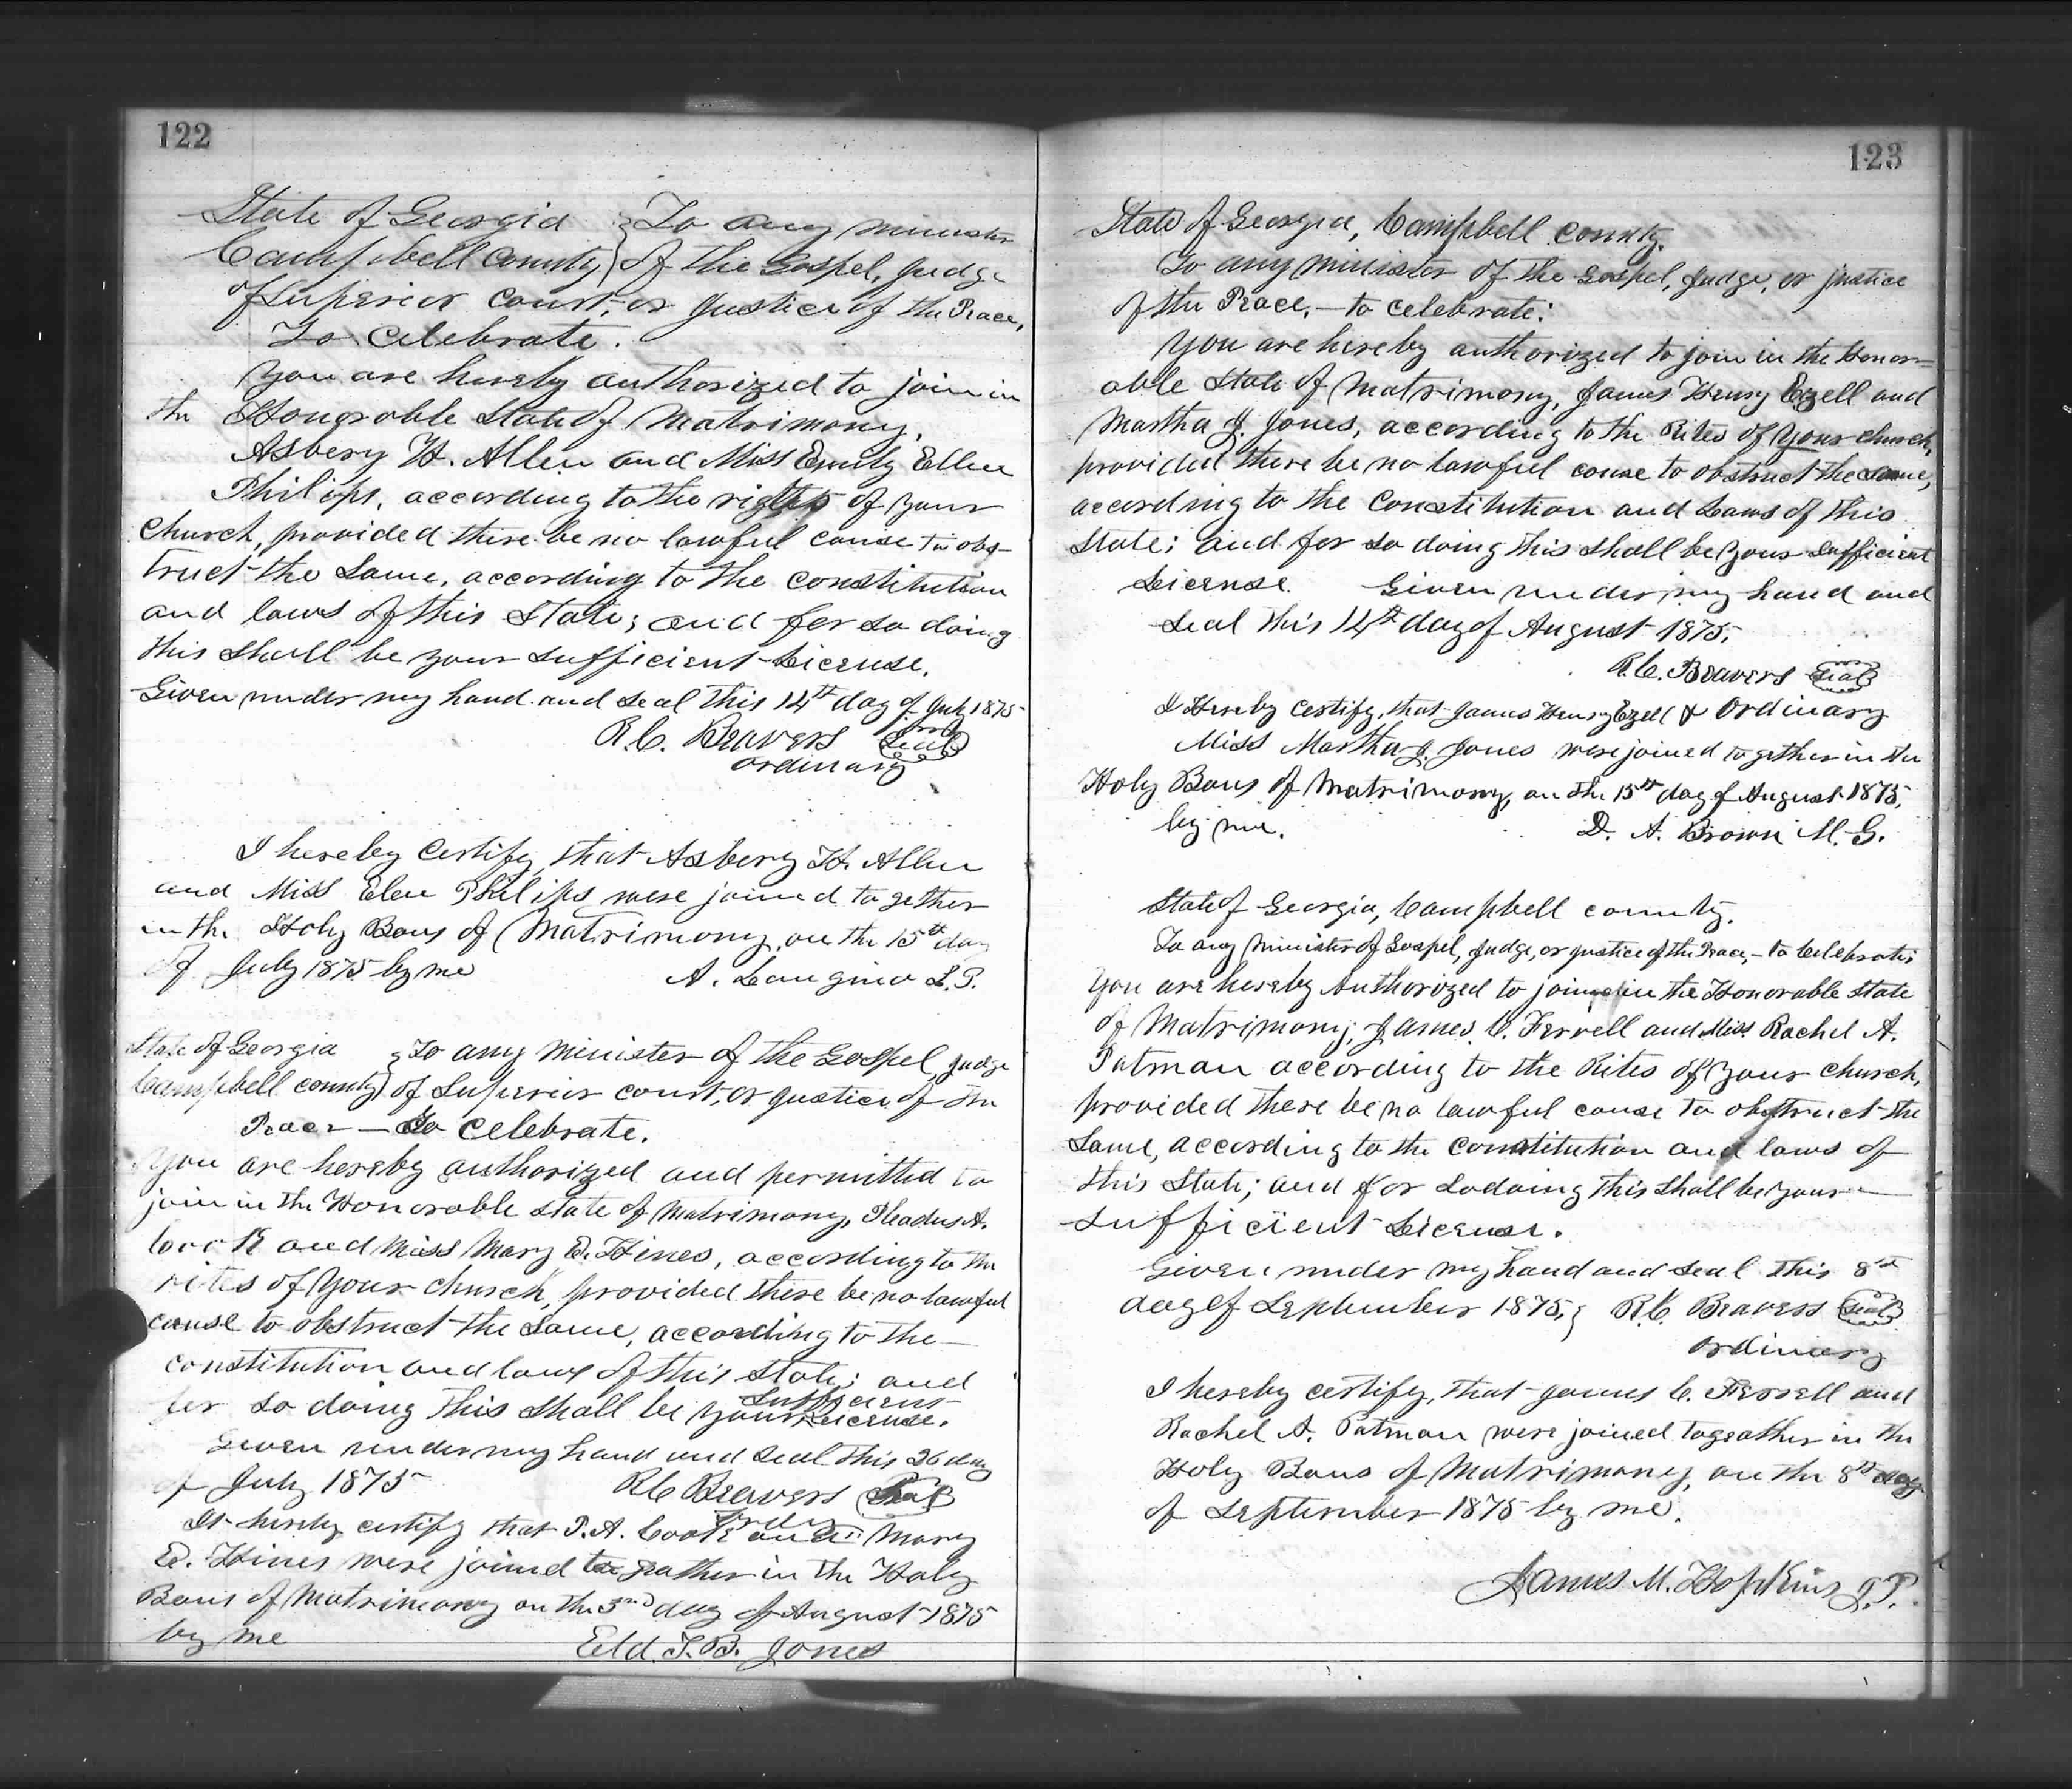 122
State of Georgia } To any minister
Campbell County } of the Gospel, Judge
of Superior Court, or Justice of the Peace,
To Celebrate.
You are hereby authorized to join in
the Honorable State of Matrimony,
Asbery H. Allen and Miss Emily Ellen
Philips, according to the rights of your
Church, provided there be no lawful cause to obs-
truct the Same, according to the constitution
and laws of this State; and for so doing
this Shall be your Sufficient License.
Given under my hand and Seal this 14th day of July 1875
R.C. Beavers Seal
ordinary
I hereby Certify, that Asbery H. Allen
and Miss Elen Philips were joined to gether
in the Holy Bans of Matrimony, on the 15th day
of July 1875 by me A. Longino L.P.
State of Georgia } To any Minister of the Gospel, Judge
Campbell County } of Superior court, or Justice of the
Peace — To Celebrate.
You are hereby authorized and permitted to
join in the Honorable State of Matrimony, A.
Cook and Miss Mary E. Hines, according to the
rites of your Church, provided there be no lawful
cause to obstruct the Same, according to the
constitution and laws of this State; and
for so doing this Shall be your Sufficient License.
Given under my hand and Seal this 26 day
of July 1875 R.C. Beavers Seal
Ordy
hereby certify that P.A. Cook and Mary
E. Hines were joined to geather in the Holy
Bans of Matrimony on the 3rd day of August 1875
by me Eld. T.B. Jones
123
State of Georgia, Campbell County.
To any Minister of the Gospel, Judge, or justice
of the Peace, — to Celebrate:
You are hereby authorized to join in the Honor=
able State of Matrimony, James Henry Ezell and
Martha J. Jones, according to the Rites of your Church,
provided there be no lawful cause to obstruct the same,
according to the Constitution and Laws of this
State; and for so doing this Shall be your Sufficient
License. Given under my hand and
Seal this 14th day of August 1875,
R.C. Beavers Seal
I Hereby Certify, that James Henry Ezell & Ordinary
Miss Martha J. Jones were joined to gether in the
Holy Bans of Matrimony, on the 15th day of August 1875,
by me. D. A. Brown M.G.
State of Georgia, Campbell County.
To any Minister of Gospel, Judge, or Justice of the Peace, — to Celebrate;
You are hereby Authorized to join in the Honorable State
of Matrimony; James C. Ferrell and Miss Rachel A.
Patman according to the Rites of your church,
provided there be no lawful cause to obstruct the
Same, according to the constitution and laws of
this State; and for so doing this Shall be your
Sufficient License.
Given under my hand and Seal this 8th
day of September 1875, } R.C. Beavers Seal
ordinary
I hereby certify, that James C. Ferrell and
Rachel A. Patman were joined togeather in the
Holy Bans of Matrimony, on the 8th day
of September 1875 by me.
James M. Hopkins J.P.